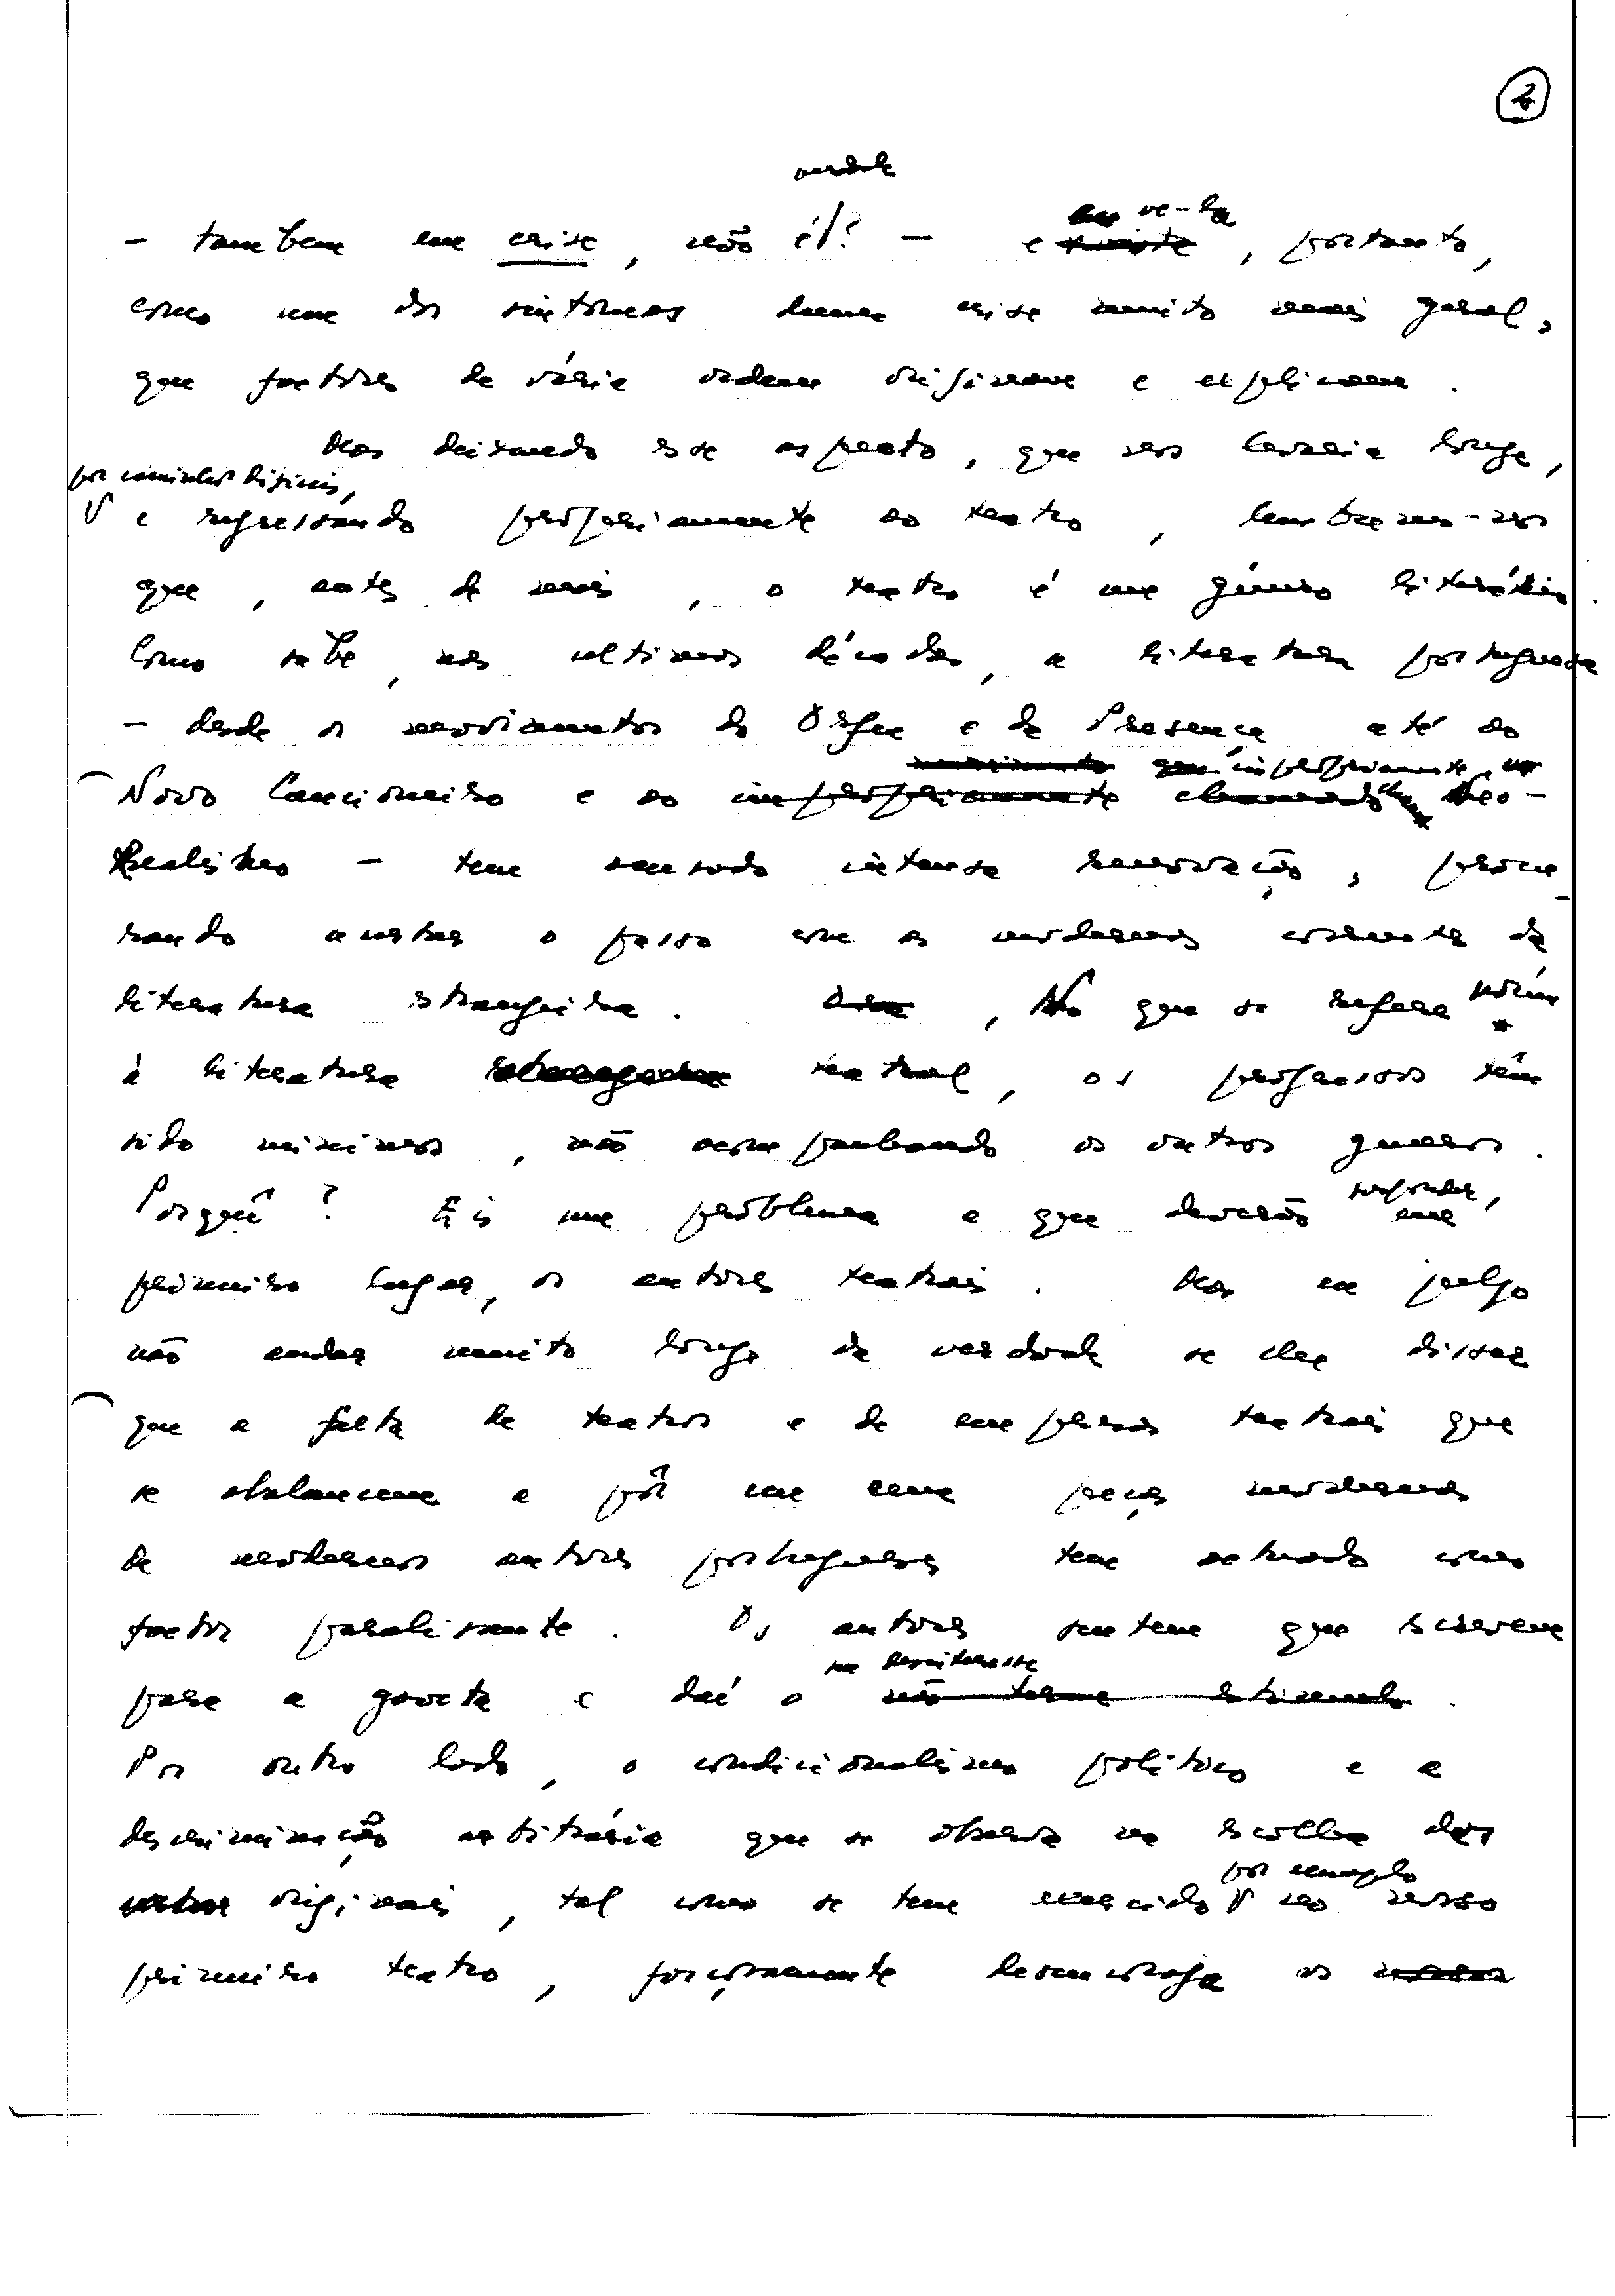 2
verdade
- tambem em crise, não é? - e vê-la, portanto,
como um dos sintomas duma crise muito mais geral,
que factores de vária ordem originam e explicam.
Mas deixando esse aspecto, que nos levaria longe,
por caminhos dificeis,
e regressando propriamente ao teatro, lembremo-nos
que, antes de mais, o teatro é um género literário.
Como sabe, nas ultimas décadas, a literatura portuguesa
- desde os movimentos do Orfeu e da Presença até ao
impropriamente
Novo Cancioneiro e ao impropriamente chamado Neo-
Realismo - tem sido intensa renovação, procu-
rando acertar o passo com as modernas correntes da
literatura estrangeira. Ora, No que se refere porém
à literatura teatral, os progressos têm
sido minimos, não acompanhando os outros generos.
Porquê? Eis um problema a que deverão responder, em
primeiro lugar, os autores teatrais. Mas eu julgo
não andar muito longe da verdade se lhe disser
que a falta de teatros e de empresas teatrais que
se abalancem a pôr em cena peças modernas
de modernos autores portugueses tem actuado como
factor paralisante. Os autores sentem que escrevem
seu desinteresse
para a gaveta e daí o não terem estimulo.
Por outro lado, o condicionalismo politico e a
descriminação arbitrária que se observa na escolha dos
por exemplo
originais, tal como se tem exercido no nosso
primeiro teatro, forçosamente desencoraja os